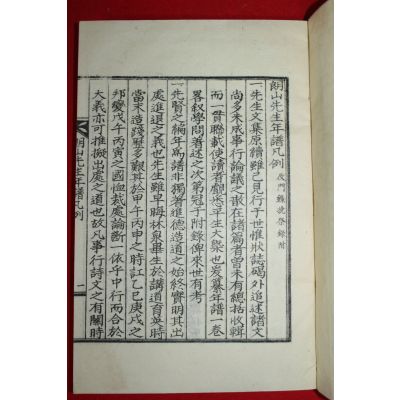 朗山先生年譜凡例 及門錄侁祭錄附
一先生文集原續雖已見行于世惟狀誌碣外追述諸文
尚多未成事行論議之散在諸篇者曾未有總括收輯
而一貫聯載使讀者觀悉早生大槩也爰纂年譜一卷
畧叙學問著述之次第冠于附錄俾來世有考
一先賢之編年爲譜非獨著進德造道之始終實明其出
處進退之義也先生雖早晦林泉畢生於講道育英時
當末造踐歷多艱其於甲午丙申之時訌乙巳庚戌之
邦變戊午丙寅之國恤裁處論斷一依乎中行而合於
大義亦可推擬出處之道也故凡事行詩文之有關時
朗山先生年譜凡例
一